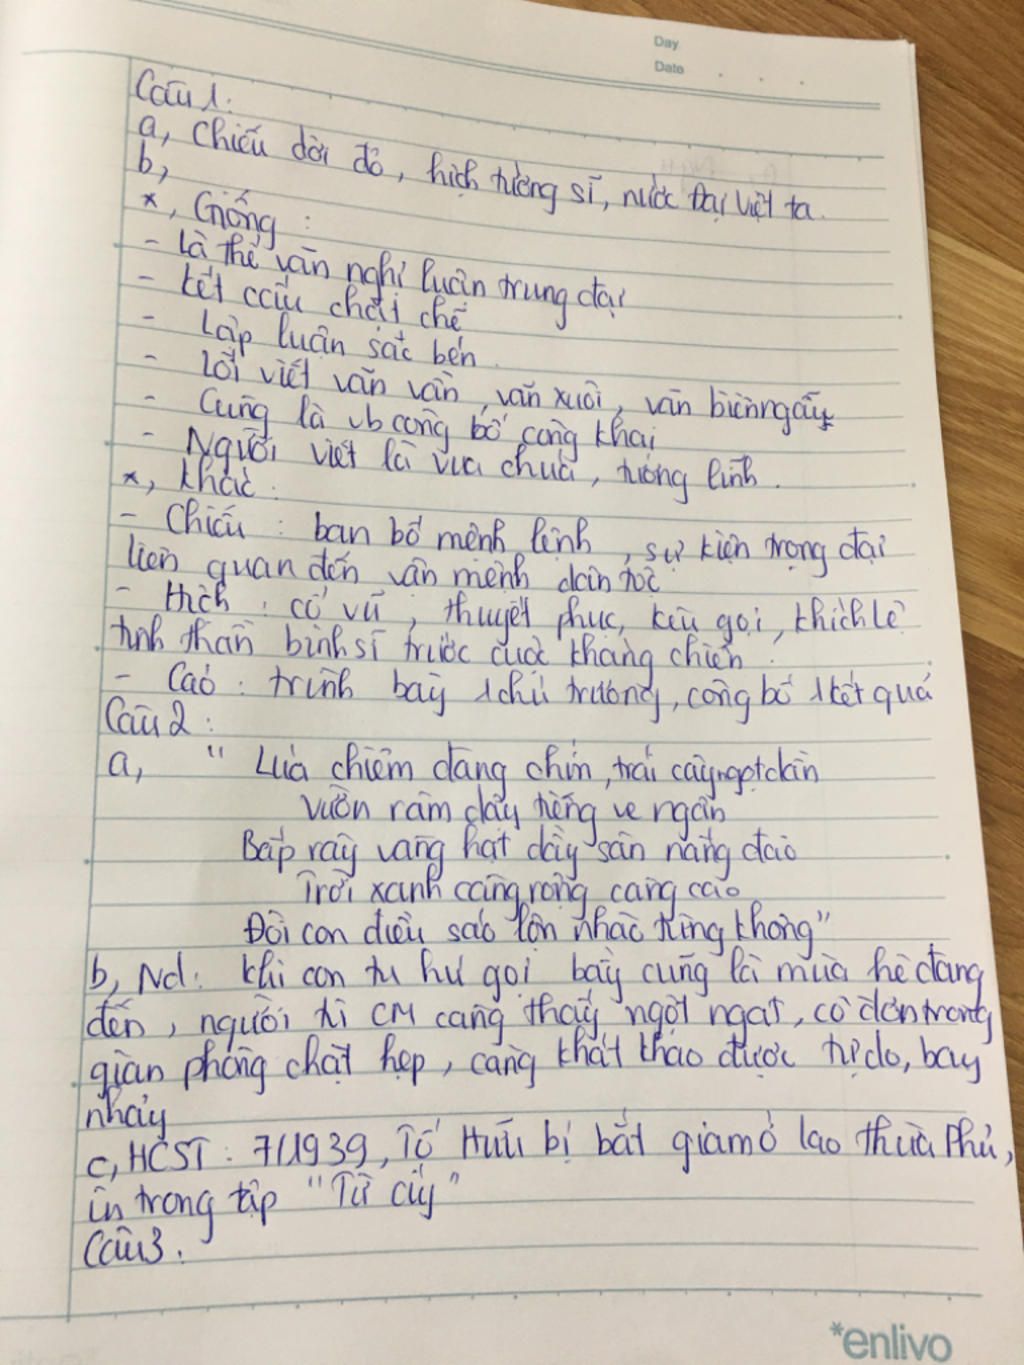 Day
Date
Câu 1:
a, Chiếu dời đô, hịch tướng sĩ, nước Đại Việt ta.
b,
*, Giống :
- Là thể văn nghị luận trung đại
- Kết cấu chặt chẽ
- Lập luận sắc bén.
- Lối viết văn vần, văn xuôi, văn biền ngẫu
- Cũng là vb công bố công khai
- Người viết là vua chúa, tướng lĩnh.
*, Khác :
- Chiếu : ban bố mệnh lệnh, sự kiện trọng đại
liên quan đến vận mệnh dân tộc
- Hịch : cổ vũ, thuyết phục, kêu gọi, khích lệ
tinh thần binh sĩ trước cuộc kháng chiến.
- Cáo : trình bày 1 chủ trương, công bố 1 kết quả
Câu 2 :
a, " Lúa chiêm đang chín, trái cây ngọt dần
Vườn râm dậy tiếng ve ngân
Bắp rây vàng hạt đầy sân nắng đào
Trời xanh càng rộng càng cao
Đôi con diều sáo lộn nhào từng không"
b, Nd: Khi con tu hú gọi bầy cũng là mùa hè đang
đến, người tù CM càng thấy ngột ngạt, cô đơn trong
gian phòng chật hẹp, càng khát khao được tự do, bay
nhảy
c, HCST : 7/1939, Tố Hữu bị bắt giam ở lao Thừa Phủ,
in trong tập "Từ ấy"
Câu 3 :
*enlivo